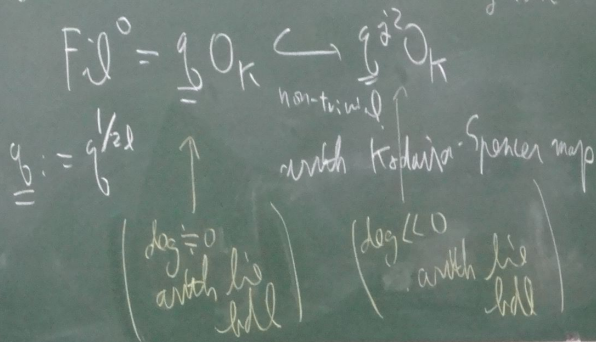 Fil⁰ = q̲̲ O_K ↪ q̲̲^{j²} O_K
non-trivial
q̲̲ := q^{1/2l}
arith Kodaira-Spencer map
deg ≒ 0
arith lie
bdl
deg << 0
arith lie
bdl